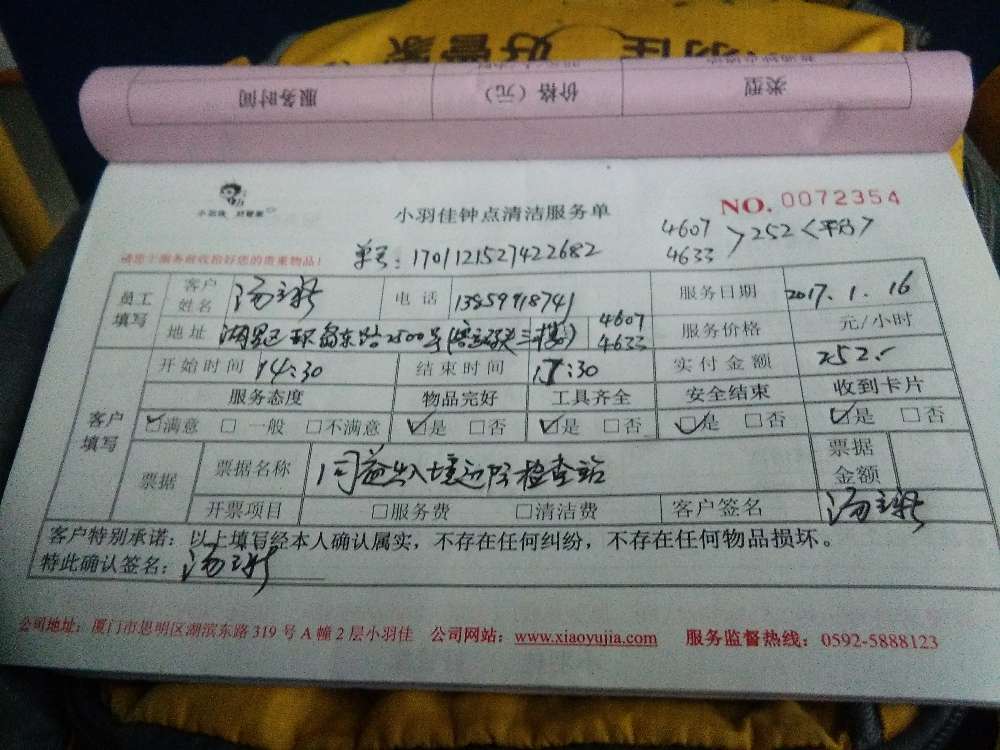 好管家
服务时间 价格（元） 类型
小羽佳 好管家
小羽佳钟点清洁服务单
NO. 0072354
单号: 1701121527422682
4607
4633 > 252 <平分>
请您于服务前收拾好您的贵重物品!
员工填写 客户姓名 电话 13959918741 服务日期 2017.1.16
地址 湖里区环岛东路2500号 4607 4633 服务价格 元/小时
客户填写 开始时间 14:30 结束时间 17:30 实付金额 252.
服务态度 物品完好 工具齐全 安全结束 收到卡片
☑满意 □一般 □不满意 ☑是 □否 ☑是 □否 ☑是 □否 ☑是 □否
票据 票据名称 同益出入境边防检查站 票据金额
开票项目 □服务费 □清洁费 客户签名
客户特别承诺：以上填写经本人确认属实，不存在任何纠纷，不存在任何物品损坏。
特此确认签名：
公司地址：厦门市思明区湖滨东路 319 号 A 幢 2 层小羽佳 公司网站：www.xiaoyujia.com 服务监督热线：0592-5888123